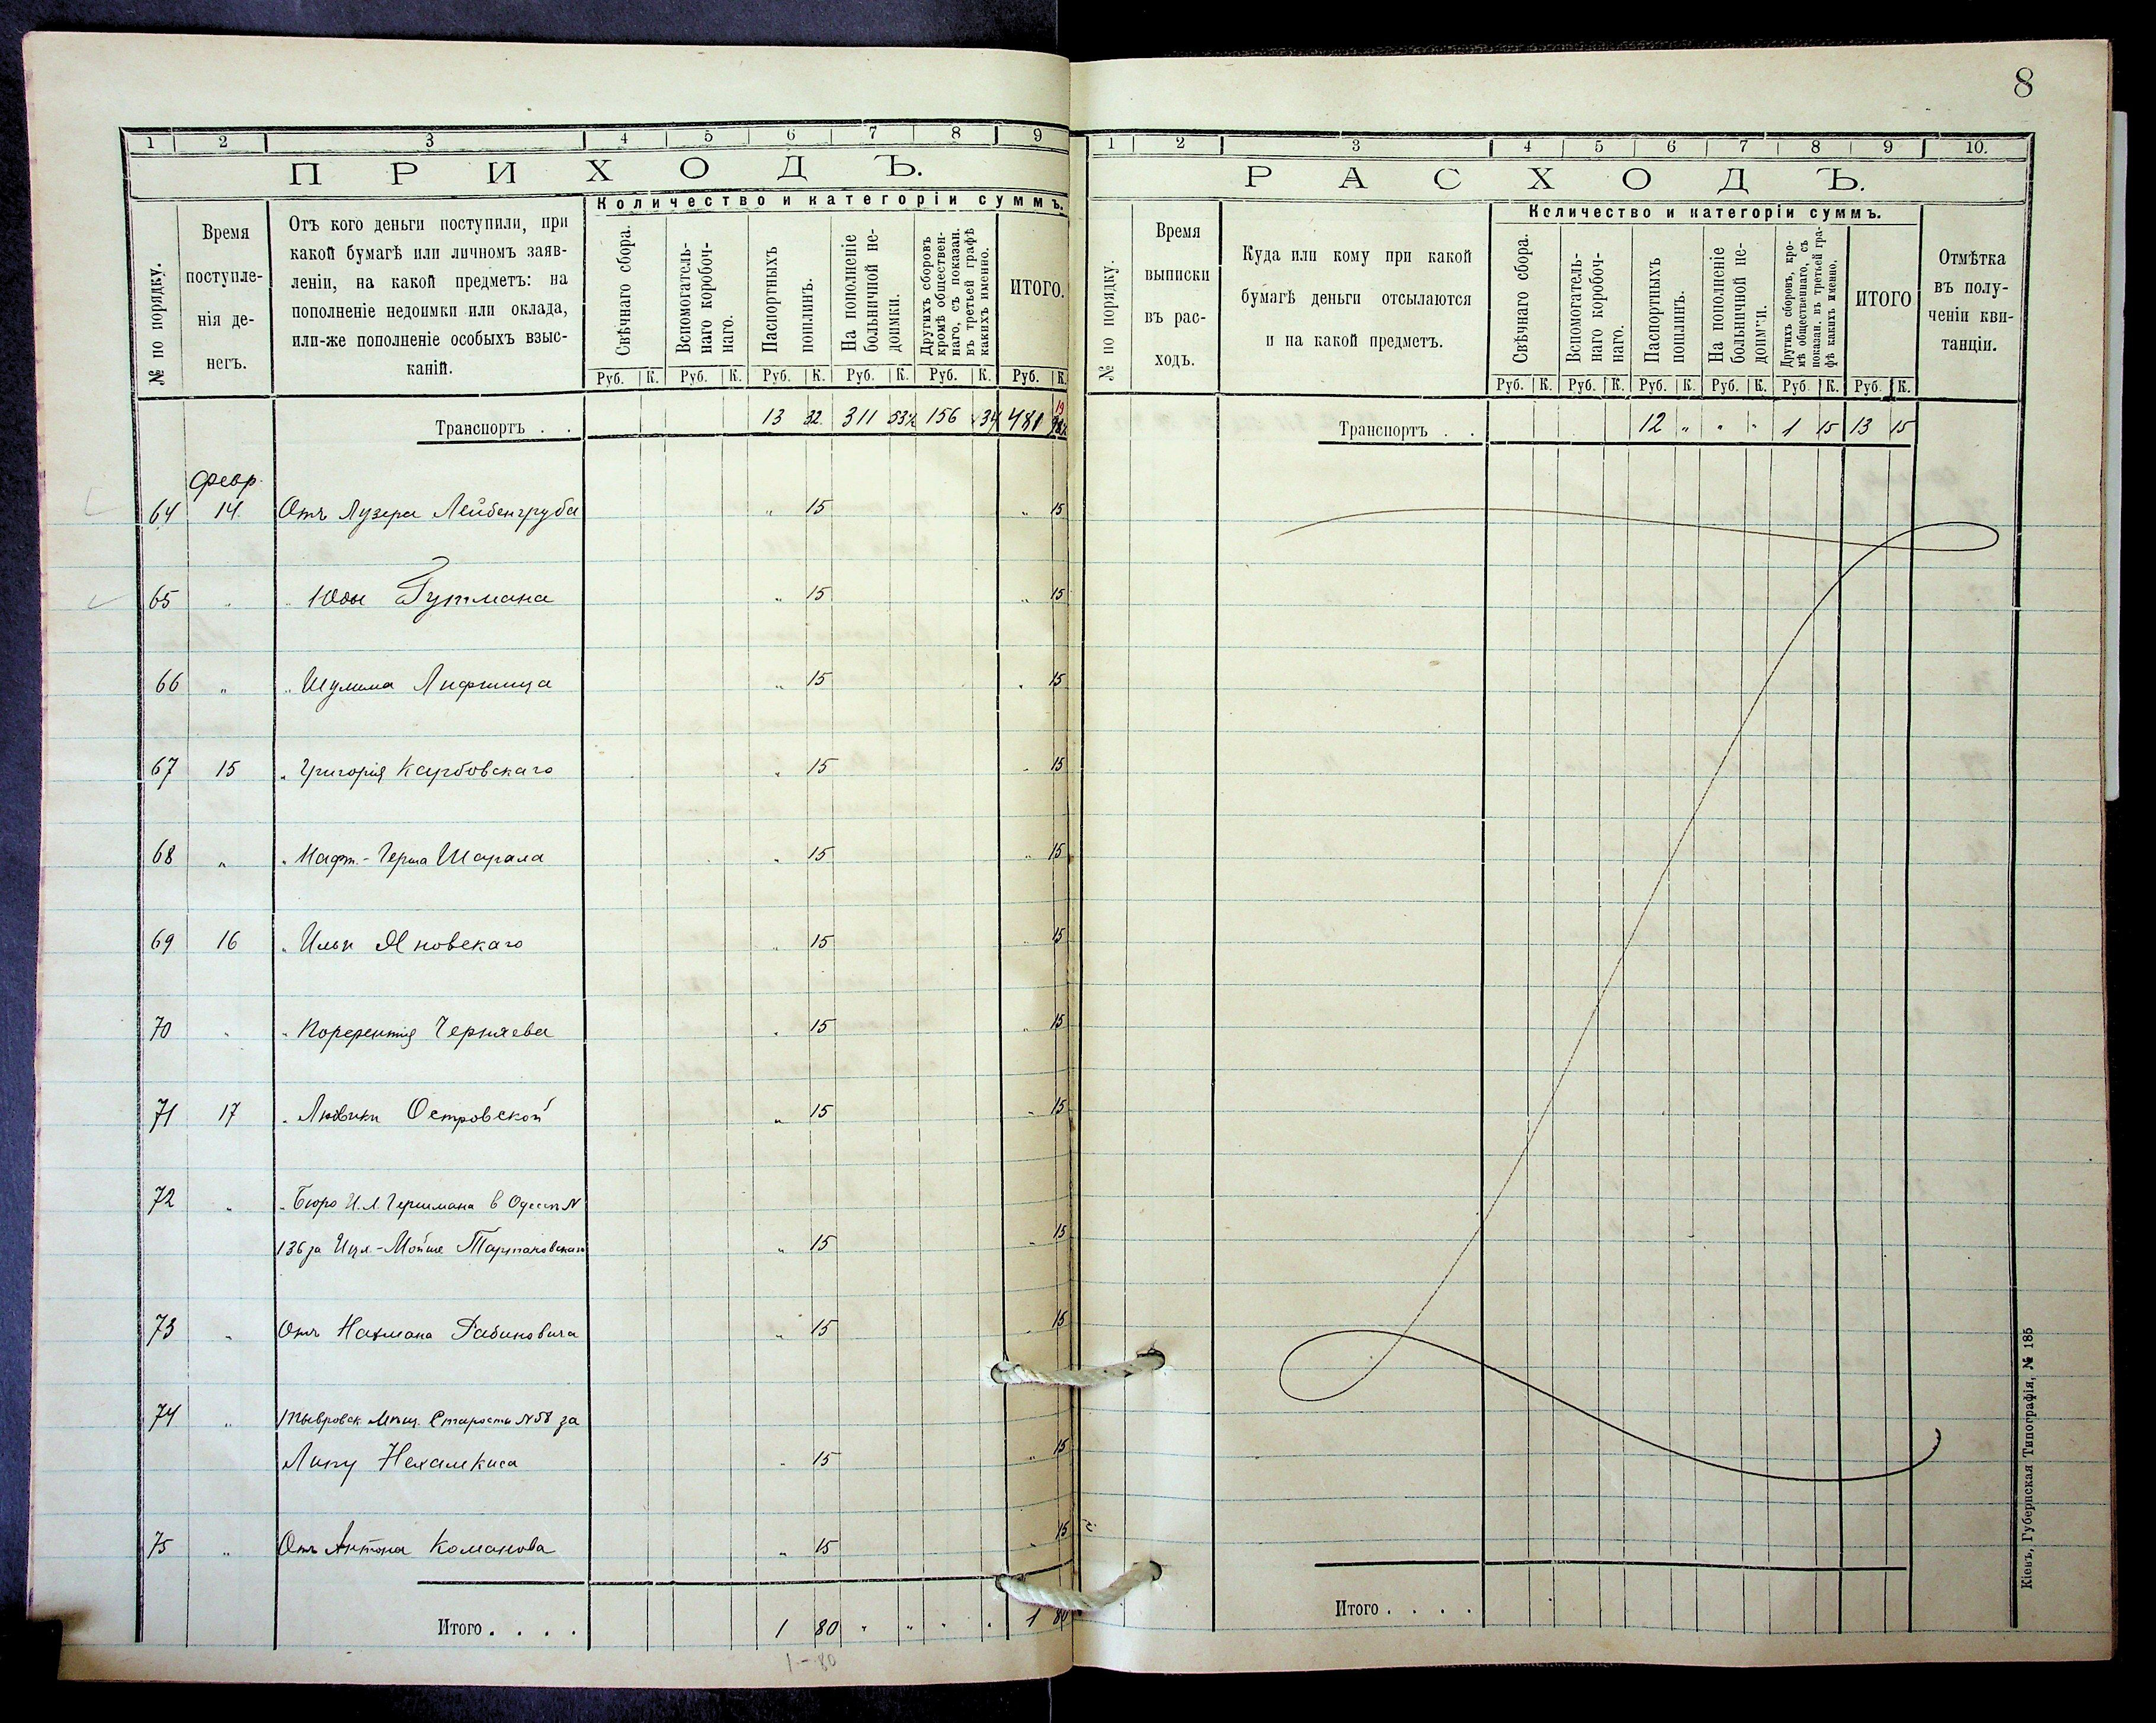 8
1 2 3 4 5 6 7 8 9
ПРИХОДЪ.
№ по порядку.
Время поступле-
нія де-
негъ.
Отъ кого деньги поступили, при
какой бумагѣ или личномъ заяв-
леніи, на какой предметъ: на
пополненіе недоимки или оклада,
или-же пополненіе особыхъ взыс-
каній.
Количество и категоріи суммъ.
Свѣчнаго сбора.
Вспомогатель-
наго коробоч-
наго.
Паспортныхъ
пошлинъ.
На пополненіе
больничной не-
доимки.
Другихъ сборовъ
кромѣ обществен-
наго, съ показан.
въ третьей графѣ
какихъ именно.
ИТОГО.
Руб. К. Руб. К. Руб. К. Руб. К. Руб. К. Руб. К.
Транспортъ . . 13 32 311 53½ 156 34 481 19
Февр.
64 14. Отъ Лузера Лейбенгруба " 15 " 15
65 " " Юды Гутмана " 15 " 15
66 " " Шулима Лифшица " 15 " 15
67 15 " Григорія Карбовскаго " 15 " 15
68 " " Нафт.-Герша Шарала " 15 " 15
69 16 " Ильи Яновскаго " 15 " 15
70 " " Терентія Черняева " 15 " 15
71 17 " Людвики Островской " 15 " 15
72 " " Бюро И. Л. Гершмана в Одессѣ N
136 за Ицк.-Мойше Тартаковскаго " 15 " 15
73 " Отъ Нахмана Рабиновича " 15 " 15
74 " Тывровск. Мѣщ. Старосты N 58 за
Липу Нехамкиса " 15 " 15
75 " Отъ Антона Команова " 15 " 15
Итого . . . . 1 80 " " " " 1 80
1 - 80
1 2 3 4 5 6 7 8 9 10.
РАСХОДЪ.
№ по порядку.
Время
выписки
въ рас-
ходъ.
Куда или кому при какой
бумагѣ деньги отсылаются
и на какой предметъ.
Количество и категоріи суммъ.
Свѣчнаго сбора.
Вспомогатель-
наго коробоч-
наго.
Паспортныхъ
пошлинъ.
На пополненіе
больничной не-
доимки.
Другихъ сборовъ, кро-
мѣ общественнаго, съ
показан. въ третьей гра-
фѣ какихъ именно.
ИТОГО
Отмѣтка
въ полу-
ченіи кви-
танціи.
Руб. К. Руб. К. Руб. К. Руб. К. Руб. К. Руб. К.
Транспортъ . . 12 " " " 1 15 13 15
Итого . . . .
Кіевъ, Губернская Типографія, № 185